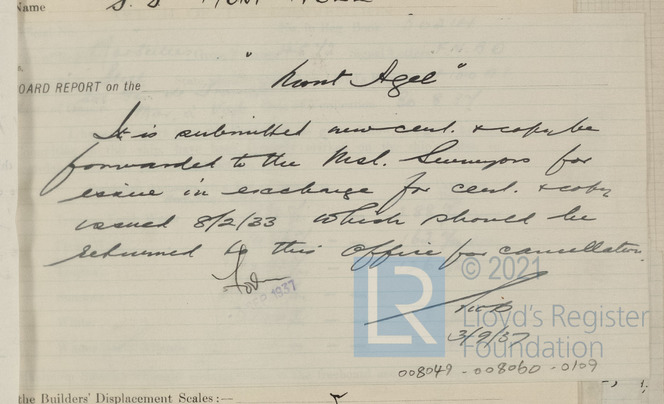 Name S.S. "MONT AGEL
BOARD REPORT on the "Mont Agel"
It is submitted new cert. & copy be
forwarded to the Msl. Surveyors for
issue in exchange for cert. & copy
issued 8/2/33 which should be
returned to this Office for cancellation.
1937
© 2021
LR
Lloyd's Register
Foundation
3/9/37
008049 - 008060 - 0109
the Builders' Displacement Scales :—